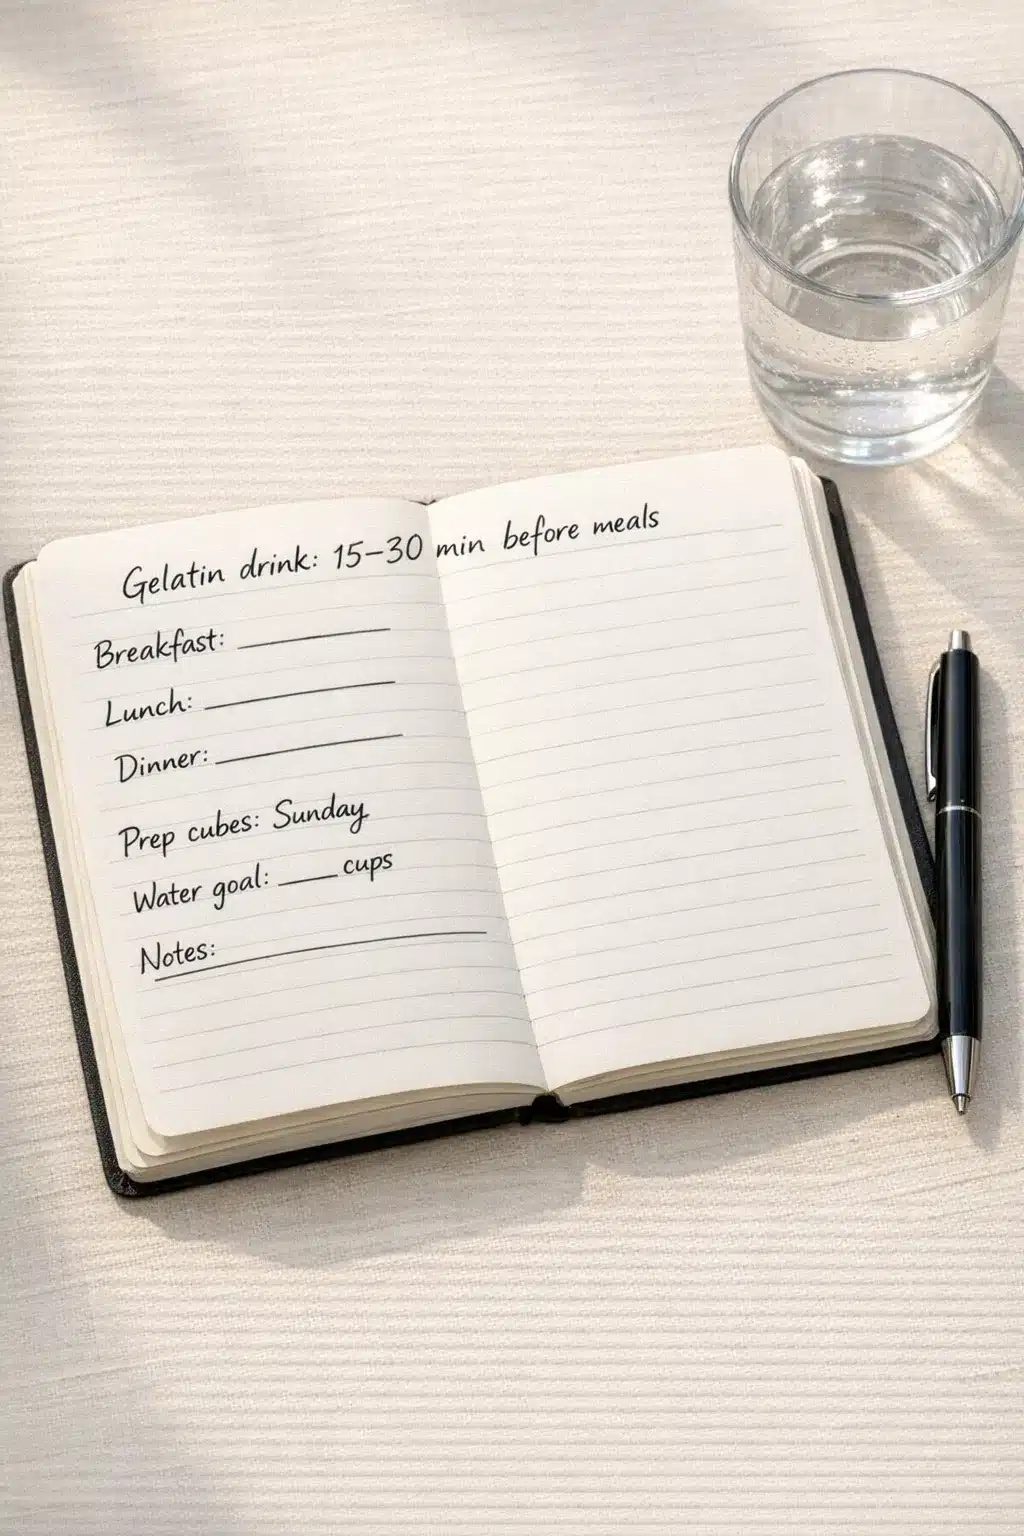 Gelatin drink: 15–30 min before meals
Breakfast: ________
Lunch: ________
Dinner: ________
Prep cubes: Sunday
Water goal: ____ cups
Notes: ________